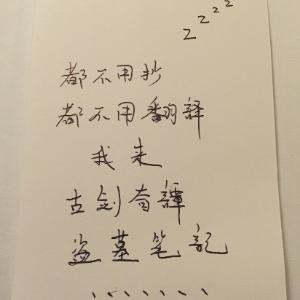 z z z z
都不用抄
都不用翻譯
我来
古剑奇譚
盗墓笔記
、、、、、、、